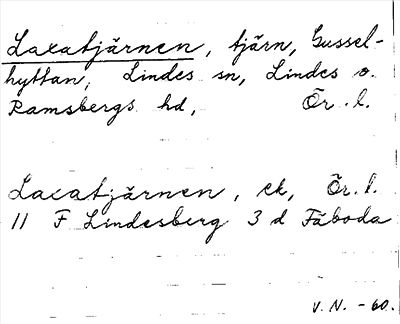 Laxatjärnen, tjärn, Gussel-
hyttan, Lindes sn, Lindes o.
Ramsbergs hd, Ör. l.
Laxatjärnen, ek, Ör. l.
11 F Lindesberg 3 d Fåboda
V. N. -60.